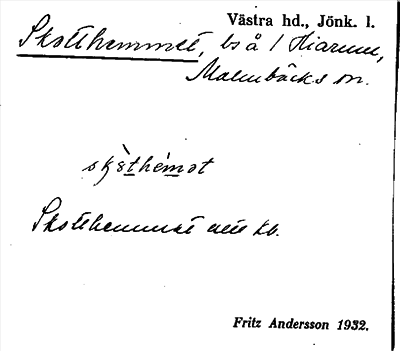 Västra hd., Jönk. l.
Skotthemmet, bs å / Hiarum,
Malmbäcks sn.
skòthém͟ət
Skotthemmet ett kb.
Fritz Andersson 1932.